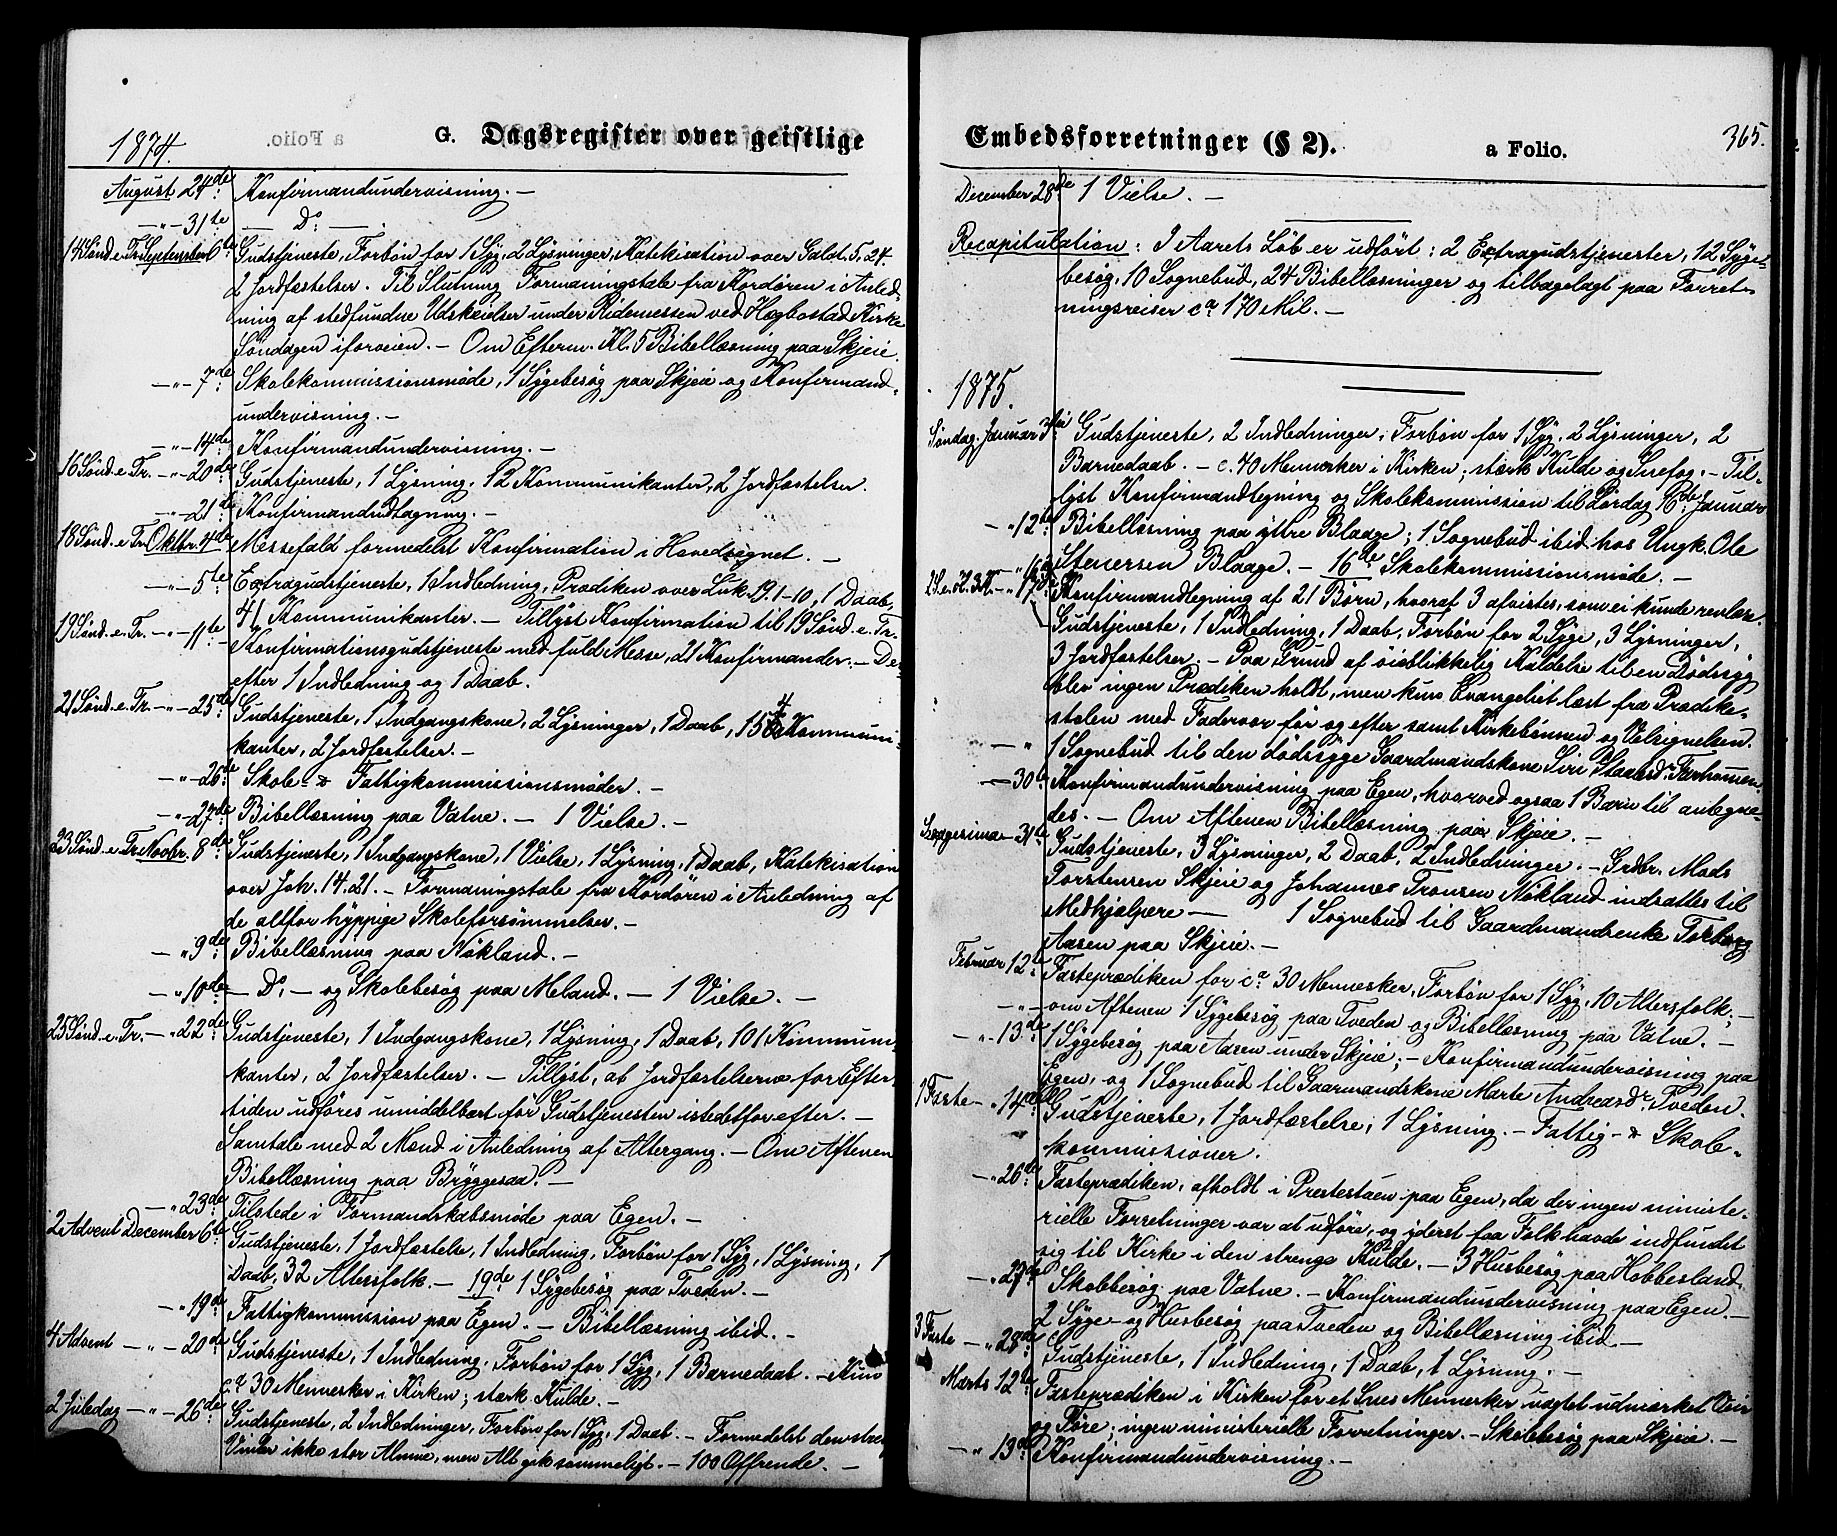 1874.
G. Dagsregister over geistlige
August 24de Konfirmandundervisning. —
— " — 31te — Do —
14 Sønd. e. Tr. September 6te Gudstjeneste, Forbøn for 1 Syg, 2 Lysninger, Katekisation over Galat. 5, 24.
2 Jordfæstelser. Til Slutning Formaningstale fra Kordøren i Anled-
ning af stedfundne Udskeielser under Ridemessen ved Hægbostad Kirke
Søndagen iforveien. — Om Efterm. Kl. 5 Bibellæsning paa Skjeie.
— " — 7de Skolekommissionsmøde, 1 Sygebesøg paa Skjeie og Konfirmand-
undervisning. —
— " — 14de Konfirmandundervisning. —
16 Sønd. e. Tr. — " — 20de Gudstjeneste, 1 Lysning, 12 Kommunikanter, 2 Jordfæstelser.
— " — 21de Konfirmandudtagning. —
18 Sønd. e. Tr. Oktbr. 4de Messefald formedelst Konfirmation i Hovedsognet. —
— " — 5te Extragudstjeneste, 1 Indledning, Prædiken over Luk. 19. 1-10, 1 Daab,
41 Kommunikanter. — Tillyst Konfirmation til 19 Sønd. e. Tr.
19 Sønd. e. Tr. — " — 11te Konfirmationsgudstjeneste med fuld Messe, 21 Konfirmander. — Der-
efter 1 Indledning og 1 Daab.
21 Sønd. e. Tr. — " — 25de Gudstjeneste, 1 Indgangskone, 2 Lysninger, 1 Daab, 154 Kommuni-
kanter, 2 Jordfæstelser. —
— " — 26de Skole- & Fattigkommissionsmøder. —
— " — 27de Bibellæsning paa Vatne. — 1 Vielse. —
23 Sønd. e. Tr. Novbr. 8de Gudstjeneste, 1 Indgangskone, 1 Vielse, 1 Lysning, 1 Daab, Katekisation
over Joh. 14. 21. — Formaningstale fra Kordøren i Anledning af
de altfor hyppige Skoleforsømmelser. —
— " 9de Bibellæsning paa Nökland. —
— " 10de — Do — og Skolebesøg paa Meland. — 1 Vielse. —
25 Sønd. e. Tr. — " 22de Gudstjeneste, 1 Indgangskone, 1 Lysning, 1 Daab, 101 Kommuni-
kanter, 2 Jordfæstelser. — Tillyst, at Jordfæstelserne for Efter-
tiden udføres umiddelbart før Gudstjenesten istedetfor efter. —
Samtale med 2 Mænd i Anledning af Altergang. — Om Aftenen
Bibellæsning paa Bryggesaa. —
— " 23de Tilstede i Formandskabsmøde paa Egen. —
2 Advent December 6te Gudstjeneste, 1 Jordfæstelse, 1 Indledning, Forbøn for 1 Syg, 1 Lysning, 1
Daab, 32 Altersfolk. — 19de 1 Sygebesøg paa Tveden. —
— " 19de Fattigkommission paa Egen. — Bibellæsning ibid. —
4 Advent — " — 20de Gudstjeneste, 1 Indledning, Forbøn for 1 Syg, 1 Barnedaab. — Kun
ca 30 Mennesker i Kirken; stærk Kulde. —
2 Juledag — " — 26de Gudstjeneste, 2 Indledninger, Forbøn for 1 Syg, 1 Daab. — Formedelst den stren
Vinter ikke stor Almue, men Alt gik sømmeligt. — 100 Offrende. —
Embedsforretninger (§ 2).
a Folio.
365.
December 28de 1 Vielse. —
Recapitulation: I Aarets Løb er udført: 2 Extragudstjenester, 12 Syge-
besøg, 10 Sognebud, 24 Bibellæsninger og tilbagelagt paa Forret-
ningsreiser ca 170 Mil. —
1875.
Søndag Januar 3die Gudstjeneste, 2 Indledninger, Forbøn for 1 Syg, 2 Lysninger, 2
Barnedaab. — c. 70 Mennesker i Kirken; stærk Kulde og Snefog. — Til-
lyst Konfirmandtegning og Skolekommission til Lørdag 16de Januar.
— " 12te Bibellæsning paa yttre Blaage; 1 Sognebud ibid. hos Ungk. Ole
" 16de Stenersen Blaage. — 16de Skolekommissionsmøde. —
2 S. e. H. 3 K. — " 17de Konfirmandtegning af 21 Børn, hvoraf 3 afvistes, som ei kunde renlæse.
Gudstjeneste, 1 Indledning, 1 Daab, Forbøn for 2 Syge, 3 Lysninger,
3 Jordfæstelser. — Paa Grund af øieblikkelig Kaldelse til en Dødssyg
blev ingen Prædiken holdt, men kun Evangeliet læst fra Prædike-
stolen med Fadervor før og efter samt Kirkebønnen og Velsignelsen.
— " 1 Sognebud til den dødssyge Gaardmandskone Siri Staalesdr.
— 30te Konfirmandundervisning paa Egen, hvorved ogsaa 1 Barn til antegne-
des. — Om Aftenen Bibellæsning paa Skjeie. —
31te Gudstjeneste, 3 Lysninger, 2 Daab, 2 Indledninger. — Grdbr. Mads
Torstensen Skjeie og Johannes Tronsen Nökland indsattes til
Medhjælpere — 1 Sognebud til Gaardmandsenke Torborg
Aasen paa Skjeie. —
Februar 12te Fasteprædiken for ca 30 Mennesker, Forbøn for 1 Syg, 10 Altersfolk; —
— " — om Aftenen 1 Sygebesøg paa Tveden og Bibellæsning paa Vatne. —
— " 13de 1 Sygebesøg paa Aasen under Skjeie; — Konfirmandundervisning paa
Egen, og 1 Sognebud til Gaarmandskone Marte Andreasdr. Tveden.
1 Faste — " 14de Gudstjeneste, 1 Jordfæstelse, 1 Lysning. — Fattig- & Skole-
kommissioner.
— " 26de Fasteprædiken, afholdt i Prestestuen paa Egen, da der ingen ministe-
rielle Forretninger var at udføre, og yderst faa Folk havde indfundet
sig til Kirke i den strenge Kulde. — 3 Husbesøg paa Hobbesland.
— " 27de Skolebesøg paa Vatne. — Konfirmandundervisning paa Egen. —
2 Syge- og Husbesøg paa Tveden og Bibellæsning ibid. —
3 Faste — " 28de Gudstjeneste, 1 Indledning, 1 Daab, 1 Lysning. —
Marts 12te Fasteprædiken i Kirken for et Snes Mennesker uagtet udmærket Veir
og Føre; ingen ministerielle Forretninger. — Skolebesøg paa Skjeie. —
— " 13de Konfirmandundervisning. —